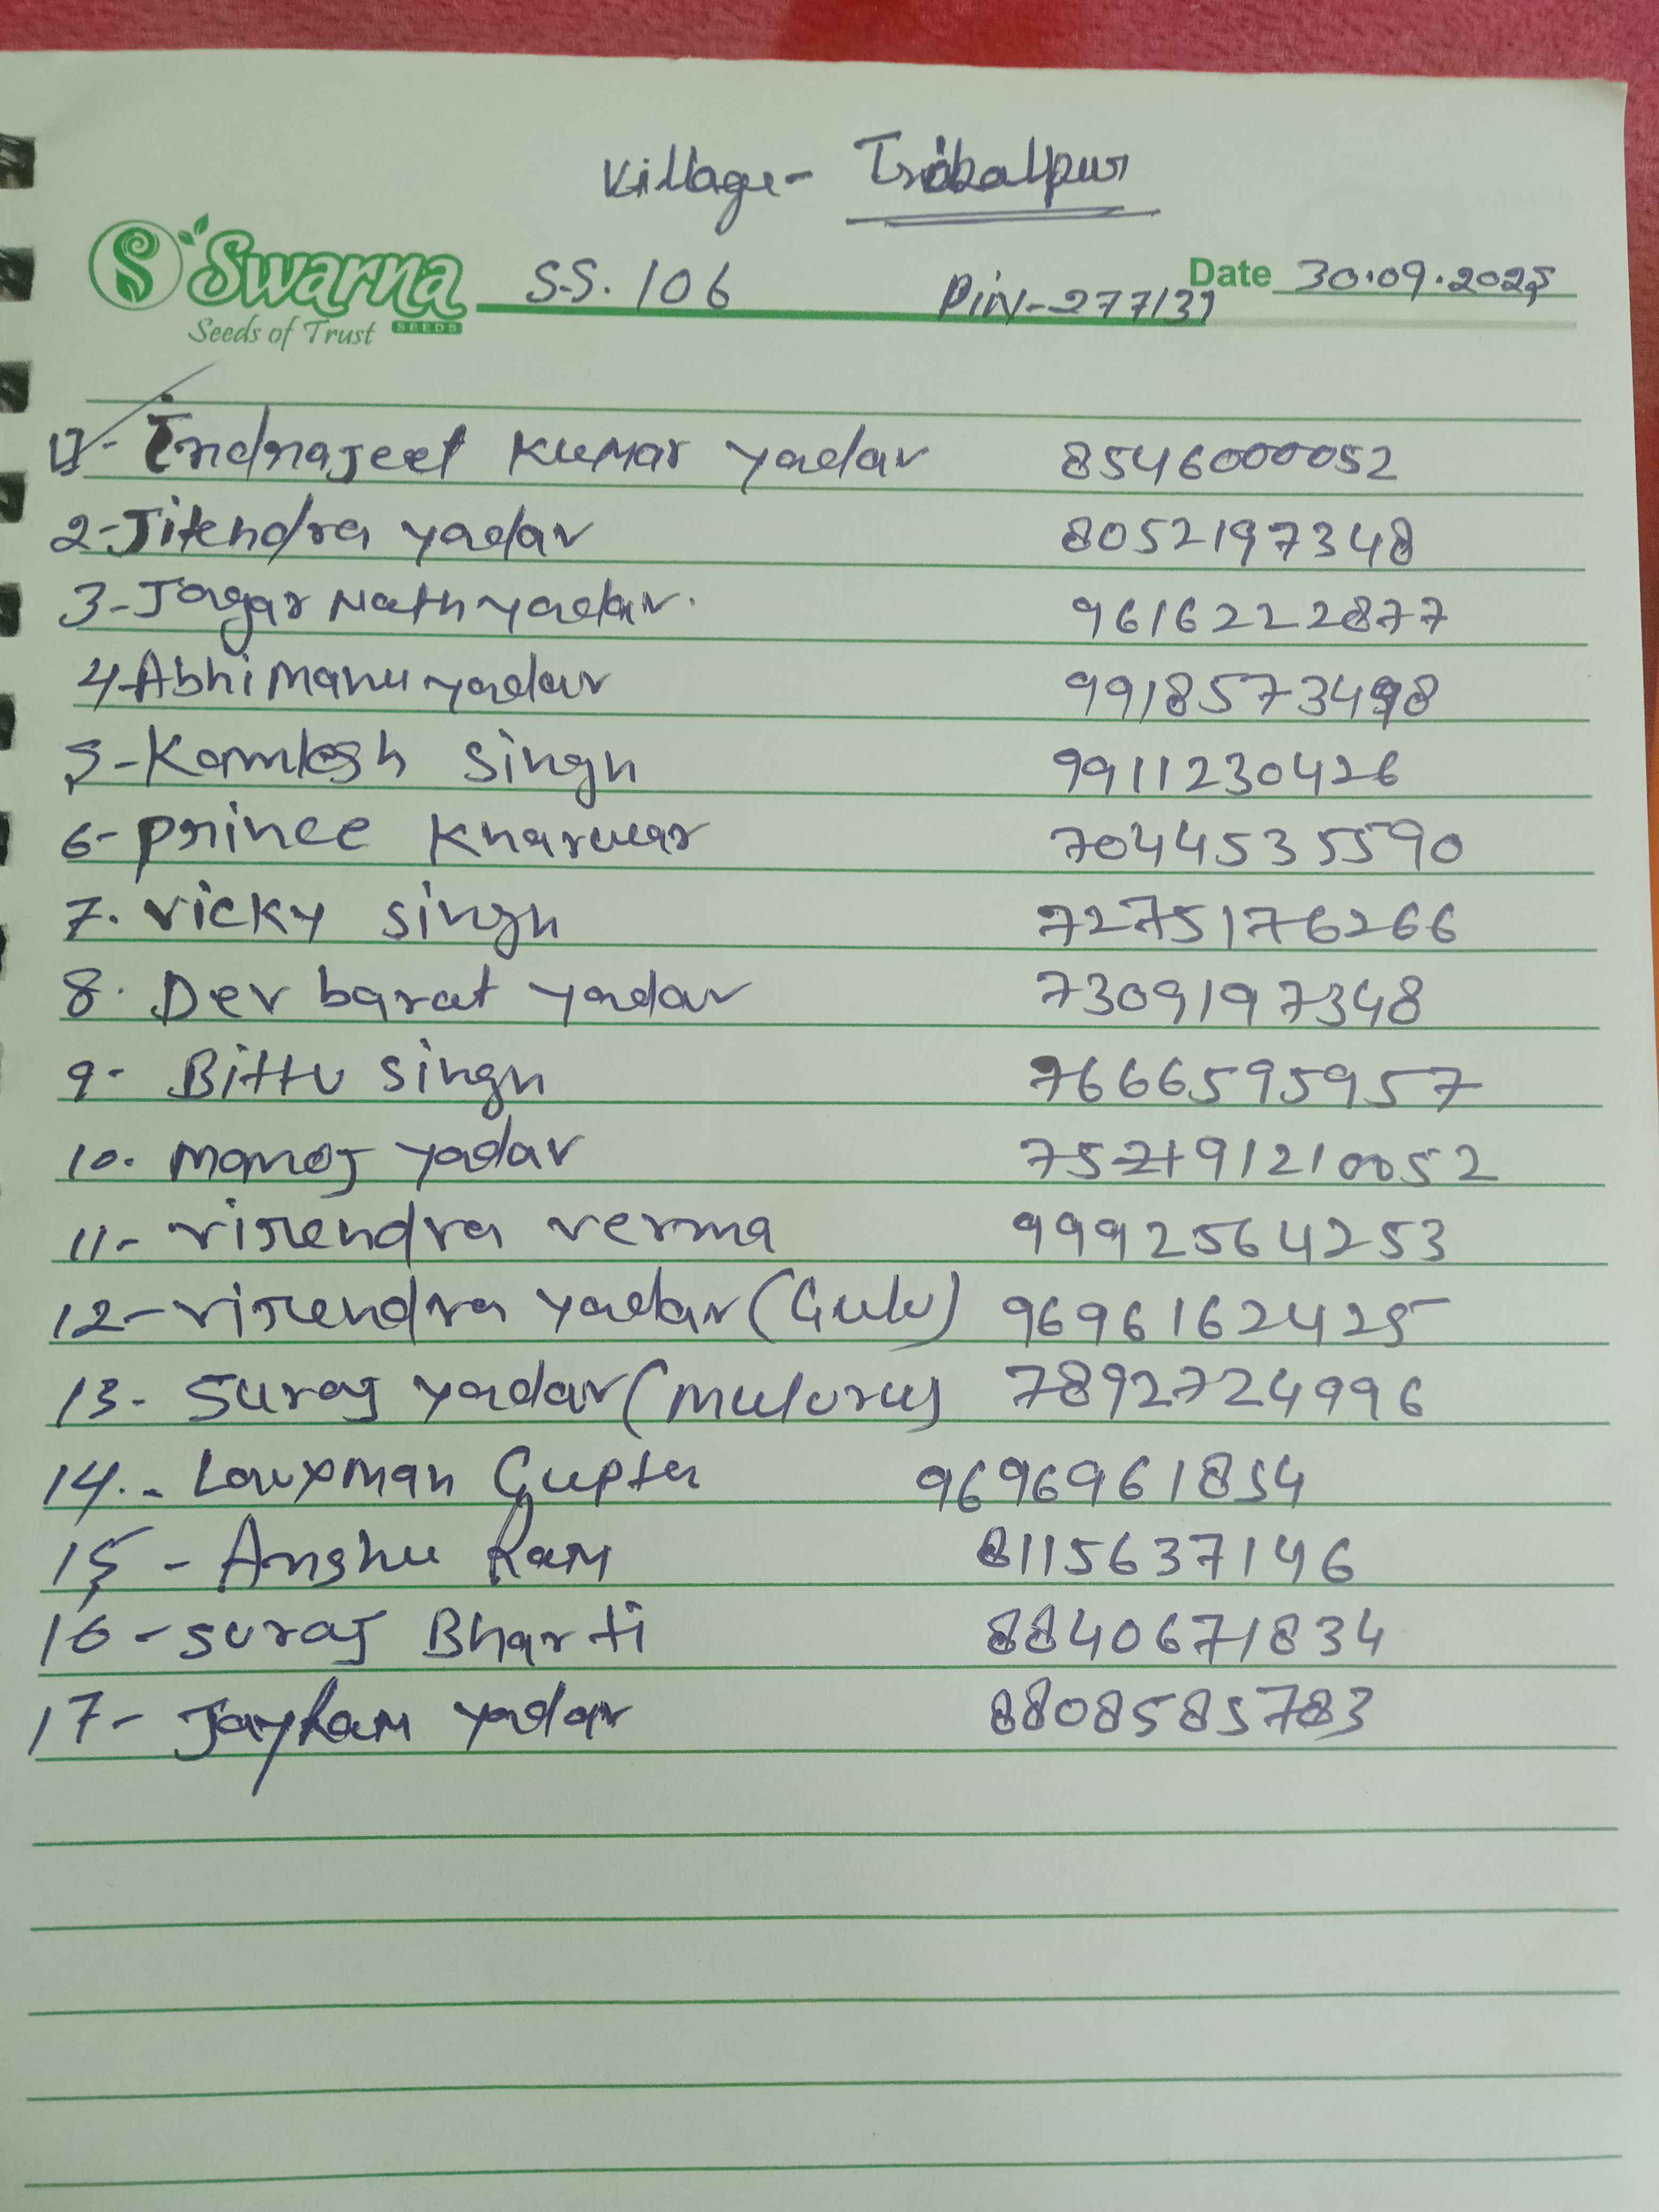 Village - Trikalpur
Swarna SEEDS
Seeds of Trust
S.S. 106
Pin - 277131
Date 30.09.2025
1- Indrajeet Kumar yadav 8546000052
2- Jitendra yadav 8052197348
3- Jagar Nath yadav. 9616222877
4- Abhimanu yadav 9918573498
5- Kamlesh Singh 9911230426
6- prince Kharwar 7044535590
7. vicky Singh 7275176266
8. Dev barat yadav 7309197348
9- Bittu Singh 7666595957
10. Manoj yadav
11- virendra verma 9992564253
12- virendra yadav (Gulu) 9696162425
13- Suraj yadav 7892724996
14.- Lauxman Gupta 9696961854
15- Anshu Ram 8115637146
16- Suraj Bharti 8840671834
17- JayRam yadav 8808585783